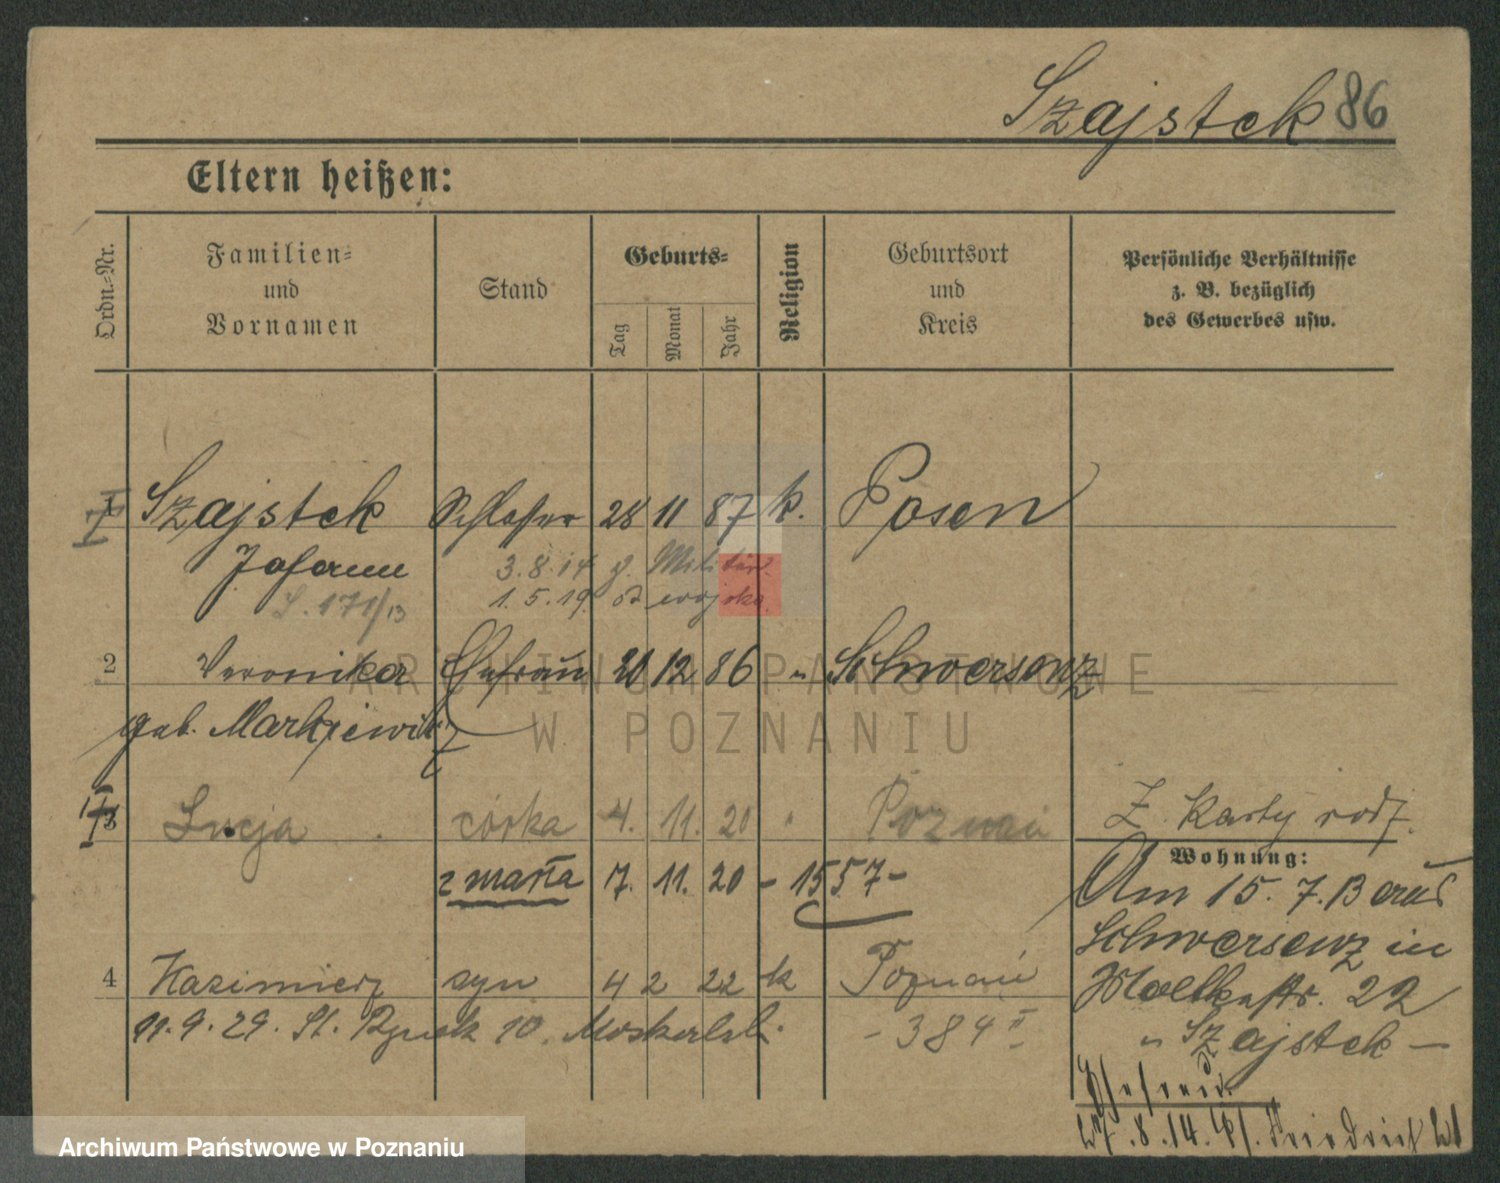 Szajstek 86
Eltern heißen:
Ordn.-Nr.
Familien=
und
Vornamen
Stand
Geburts=
Tag
Monat
Jahr
Religion
Geburtsort
und
Kreis
Persönliche Verhältnisse
z. B. bezüglich
des Gewerbes usw.
I Szajstek Schlosser 28 11 87 k. Posen
Johann 3.8.14 z. Militär.
171/13 1.5.19 od wojska.
2 Veronika Ehefrau 20 12 86 " Schwersenz
geb. Markiewicz
3 Lucja córka 4. 11. 20 " Poznań Z karty rodz.
Wohnung:
zmarła 7. 11. 20 - 1557-
Am 15. 7. 13 aus
Schwersenz in
Moltkestr. 22
" Szajstek -
4 Kazimierz syn 4 2 22 k Poznań
11.9.29. St. Rynek 10. - 384 II
Ehefrau
27.8.14.
ARCHIWUM PAŃSTWOWE
W POZNANIU
Archiwum Państwowe w Poznaniu